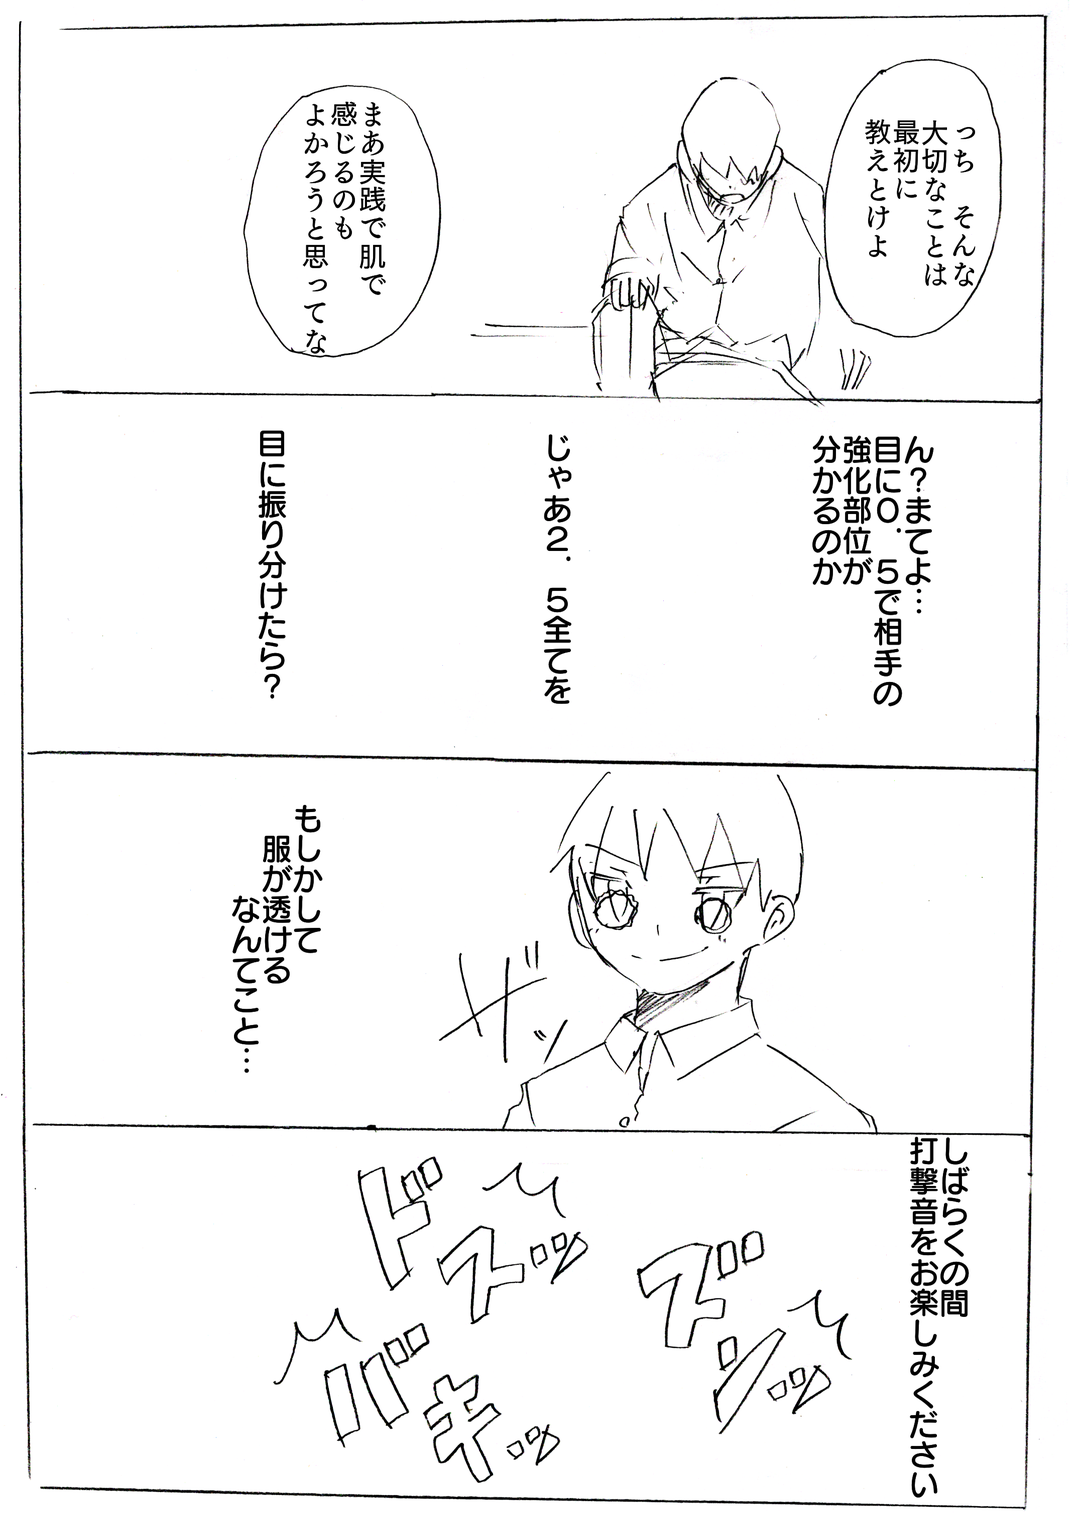 っち そんな
大切なことは
最初に
教えとけよ
まあ実践で肌で
感じるのも
よかろうと思ってな
ん?まてよ…
目に0.5で相手の
強化部位が
分かるのか
じゃあ2.5全てを
目に振り分けたら?
ザッ
もしかして
服が透ける
なんてこと…
しばらくの間
打撃音をお楽しみください
ズンッ
ドスッ
バキッ